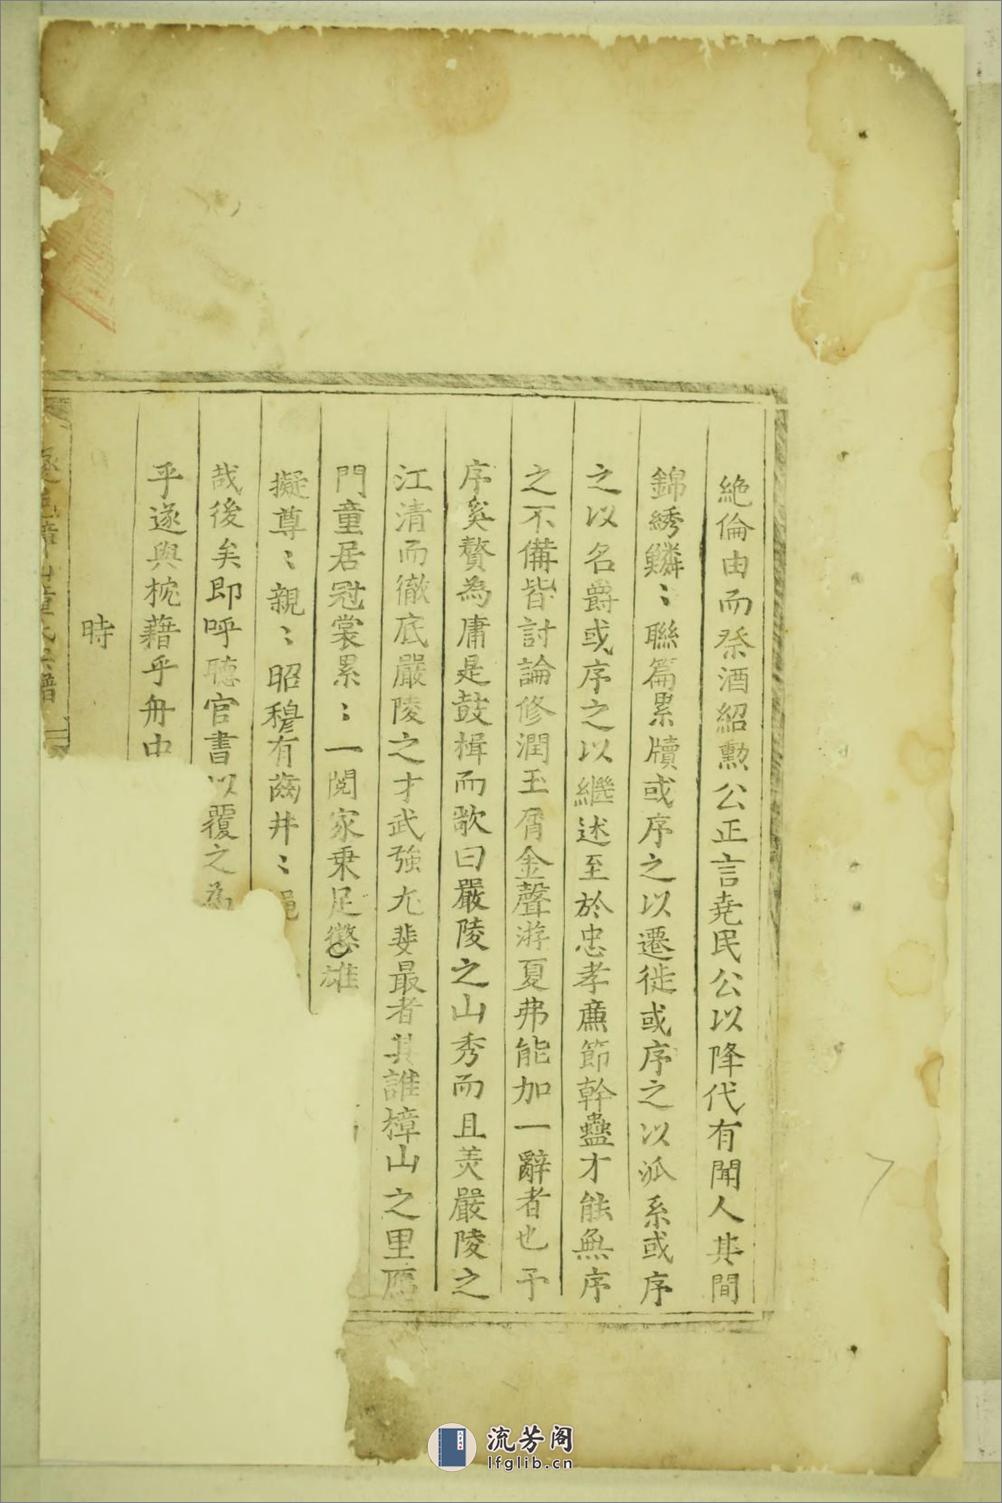 絶倫由而祭酒紹勳公正言堯民公以降代有聞人其間
錦綉鱗〻聯篇累牘或序之以遷徙或序之以泒系或序
之以名爵或序之以繼述至於忠孝廉節幹蠱才能無序
之不備皆討論修潤玉屑金聲游夏弗能加一辭者也予
序奚贅為庸是鼓楫而歌曰嚴陵之山秀而且羙嚴陵之
江清而徹底嚴陵之才武強尤斐最者其誰樟山之里
門童居冠裳累〻一閱家乗足雄
擬尊〻親〻昭穆有齒井〻繩
哉後矣即呼聴官書以覆之為
乎遂與枕藉乎舟中
時
童氏宗譜
流芳阁
lfglib.cn